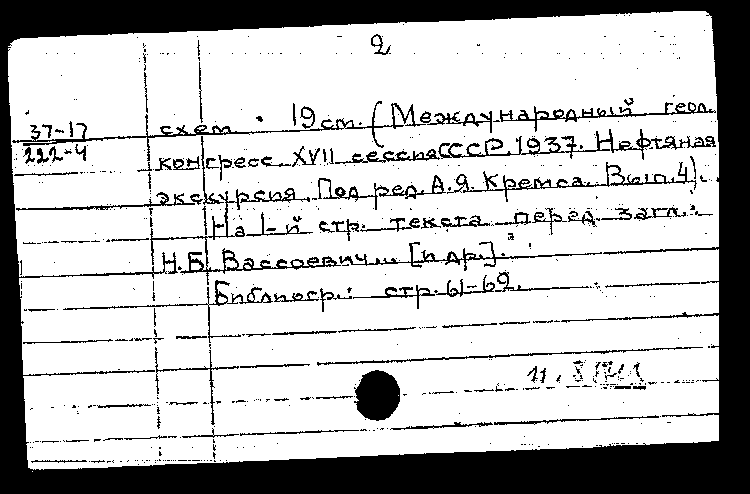 2
37-17
222-4
схем. 19 cm. (Международный геол.
конгресс. XVII сессия СССР. 1937. Нефтяная
экскурсия. Под ред. А.Я. Кремса. Вып. 4).
На 1-й стр. текста перед загл.:
Н.Б. Вассоевич... [и др.].
Библиогр.: стр. 61-69.